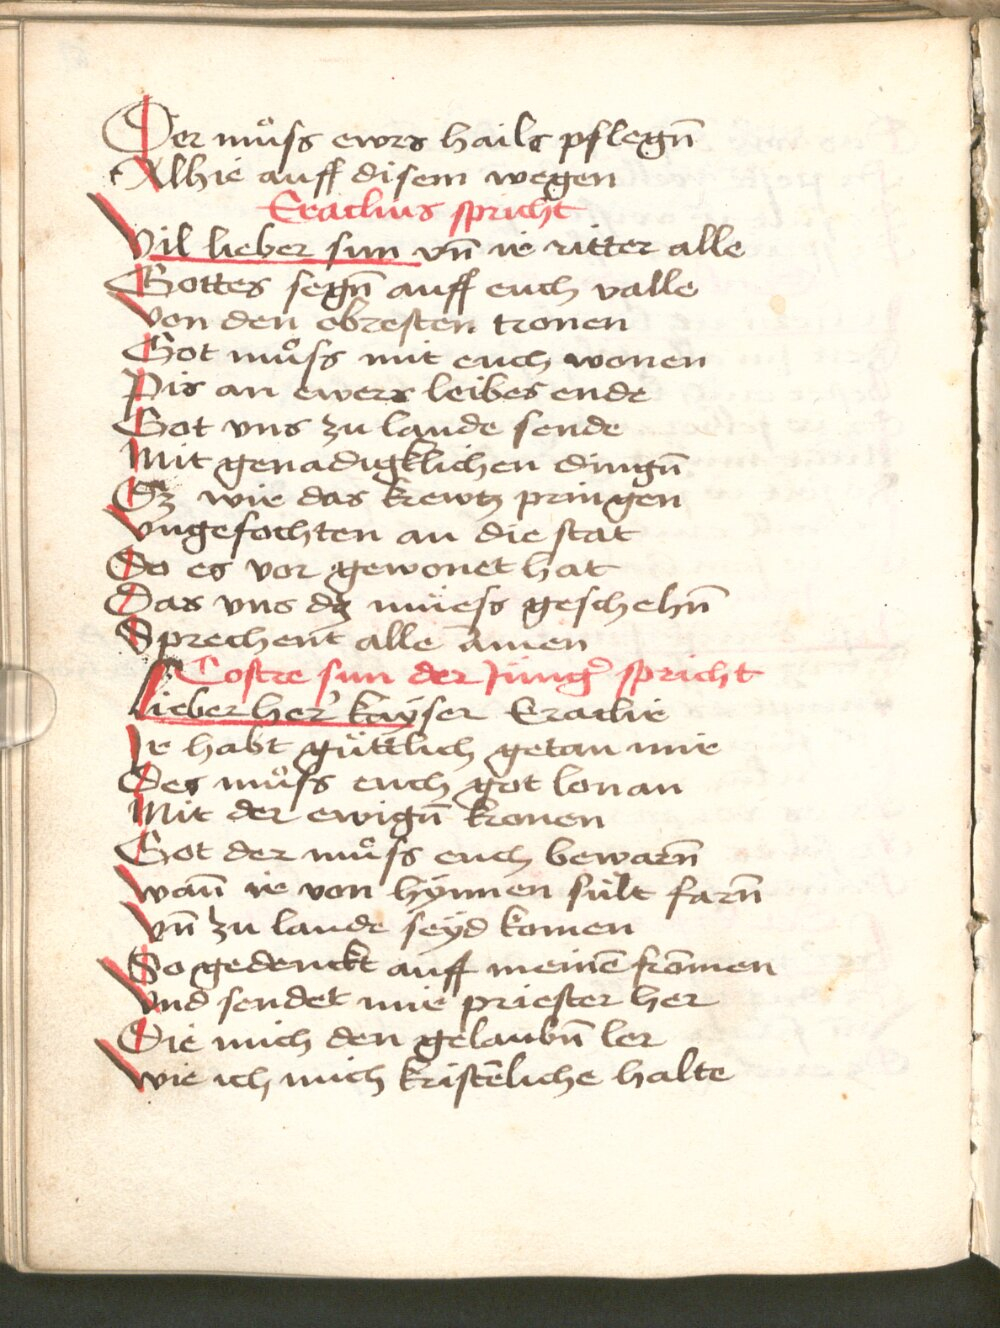 Der muͦss ewrs hails pflegn̄
Alhie auff disem wegen
Eraclius spricht
Vil lieber sun vn̄ ir ritter alle
Gottes segn̄ auff euch valle
Von den obresten tronen
Got muͦss mit euch wonen
Pis an ewers leibes ende
Got vns zu lande sende
Mit genadigklichen dingn̄
Dz wir das krewtz pringen
Vngefochten an die stat
Do es vor gewonet hat
Das vns dz müess geschehn̄
Sprechent alle amen
Costre sun der Jüng spricht
Lieber her kayser Eraclie
Ir habt güttlich getan mir
Des muͦss euch got lonan
Mit der ewign̄ kronen
Got der muͦss euch bewarn̄
Wan̄ ir von hÿnnen sült farn̄
Vn̄ zu lande seÿd komen
So gedenckt auff meinē from̄en
Vnd sendet mir priester her
Die mich den gelaubn̄ ler
Wie ich mich kristēliche halte